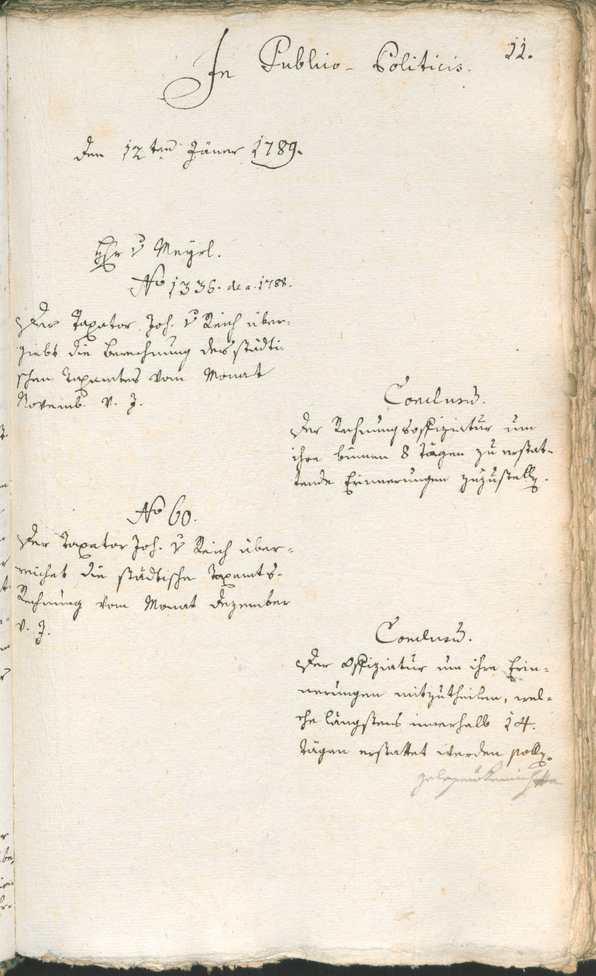 11.
In Publico-Politicis.
den 12ten Jäner 1789.
Hr v Mayrl.
No 1336. de a. 1788.
Der Taxator Joh. v Reich über-
giebt die Berechnung des städti-
schen Taxamtes vom Monat
Novemb. v. J.
Conclusum.
Der Rechnungsoffiziatur um
ihre binnen 8 Tägen zu erstat-
tende Erinnerungen zuzustellen.
No 60.
Der Taxator Joh. v Reich über-
reichet die städtische Taxamts-
Rechnung vom Monat Dezember
v. J.
Conclusum.
Der Offiziatur um ihre Erin-
nerungen mitzutheilen, wel-
che längstens innerhalb 14.
Tägen erstattet werden sollen.